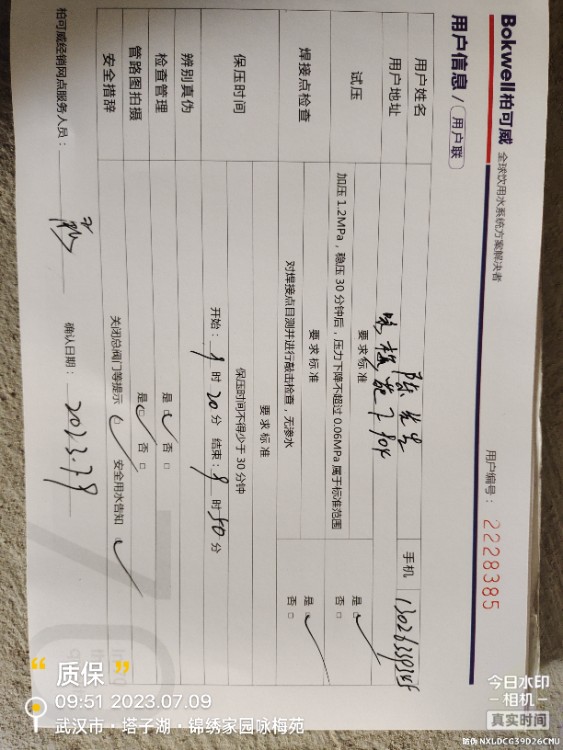 Bokwell柏可威 全球饮用水系统方案解决者
用户信息 / 用户联
用户编号: 2228385
用户姓名 陈先生 手机
用户地址 咏梅苑7-904
试压 要求标准
加压 1.2MPa,稳压 30 分钟后,压力下降不超过 0.06MPa 属于标准范围
是 □ 否 □
焊接点检查 要求标准
对焊接点目测并进行敲击检查,无渗水
是 □ 否 □
保压时间 要求标准
保压时间不得少于 30 分钟
开始: 9 时 20 分 结束: 9 时 50 分
辨别真伪 是 □ 否 □
检查管理 是 □ 否 □
管路图拍摄
安全措辞 关闭总阀门等提示 □ 安全用水告知
柏可威经销网点服务人员:
确认日期: 2023.7.9
“质保”
09:51 2023.07.09
武汉市·塔子湖·锦绣家园咏梅苑
今日水印
相机
真实时间
防伪 NXLDCG39D26CMU